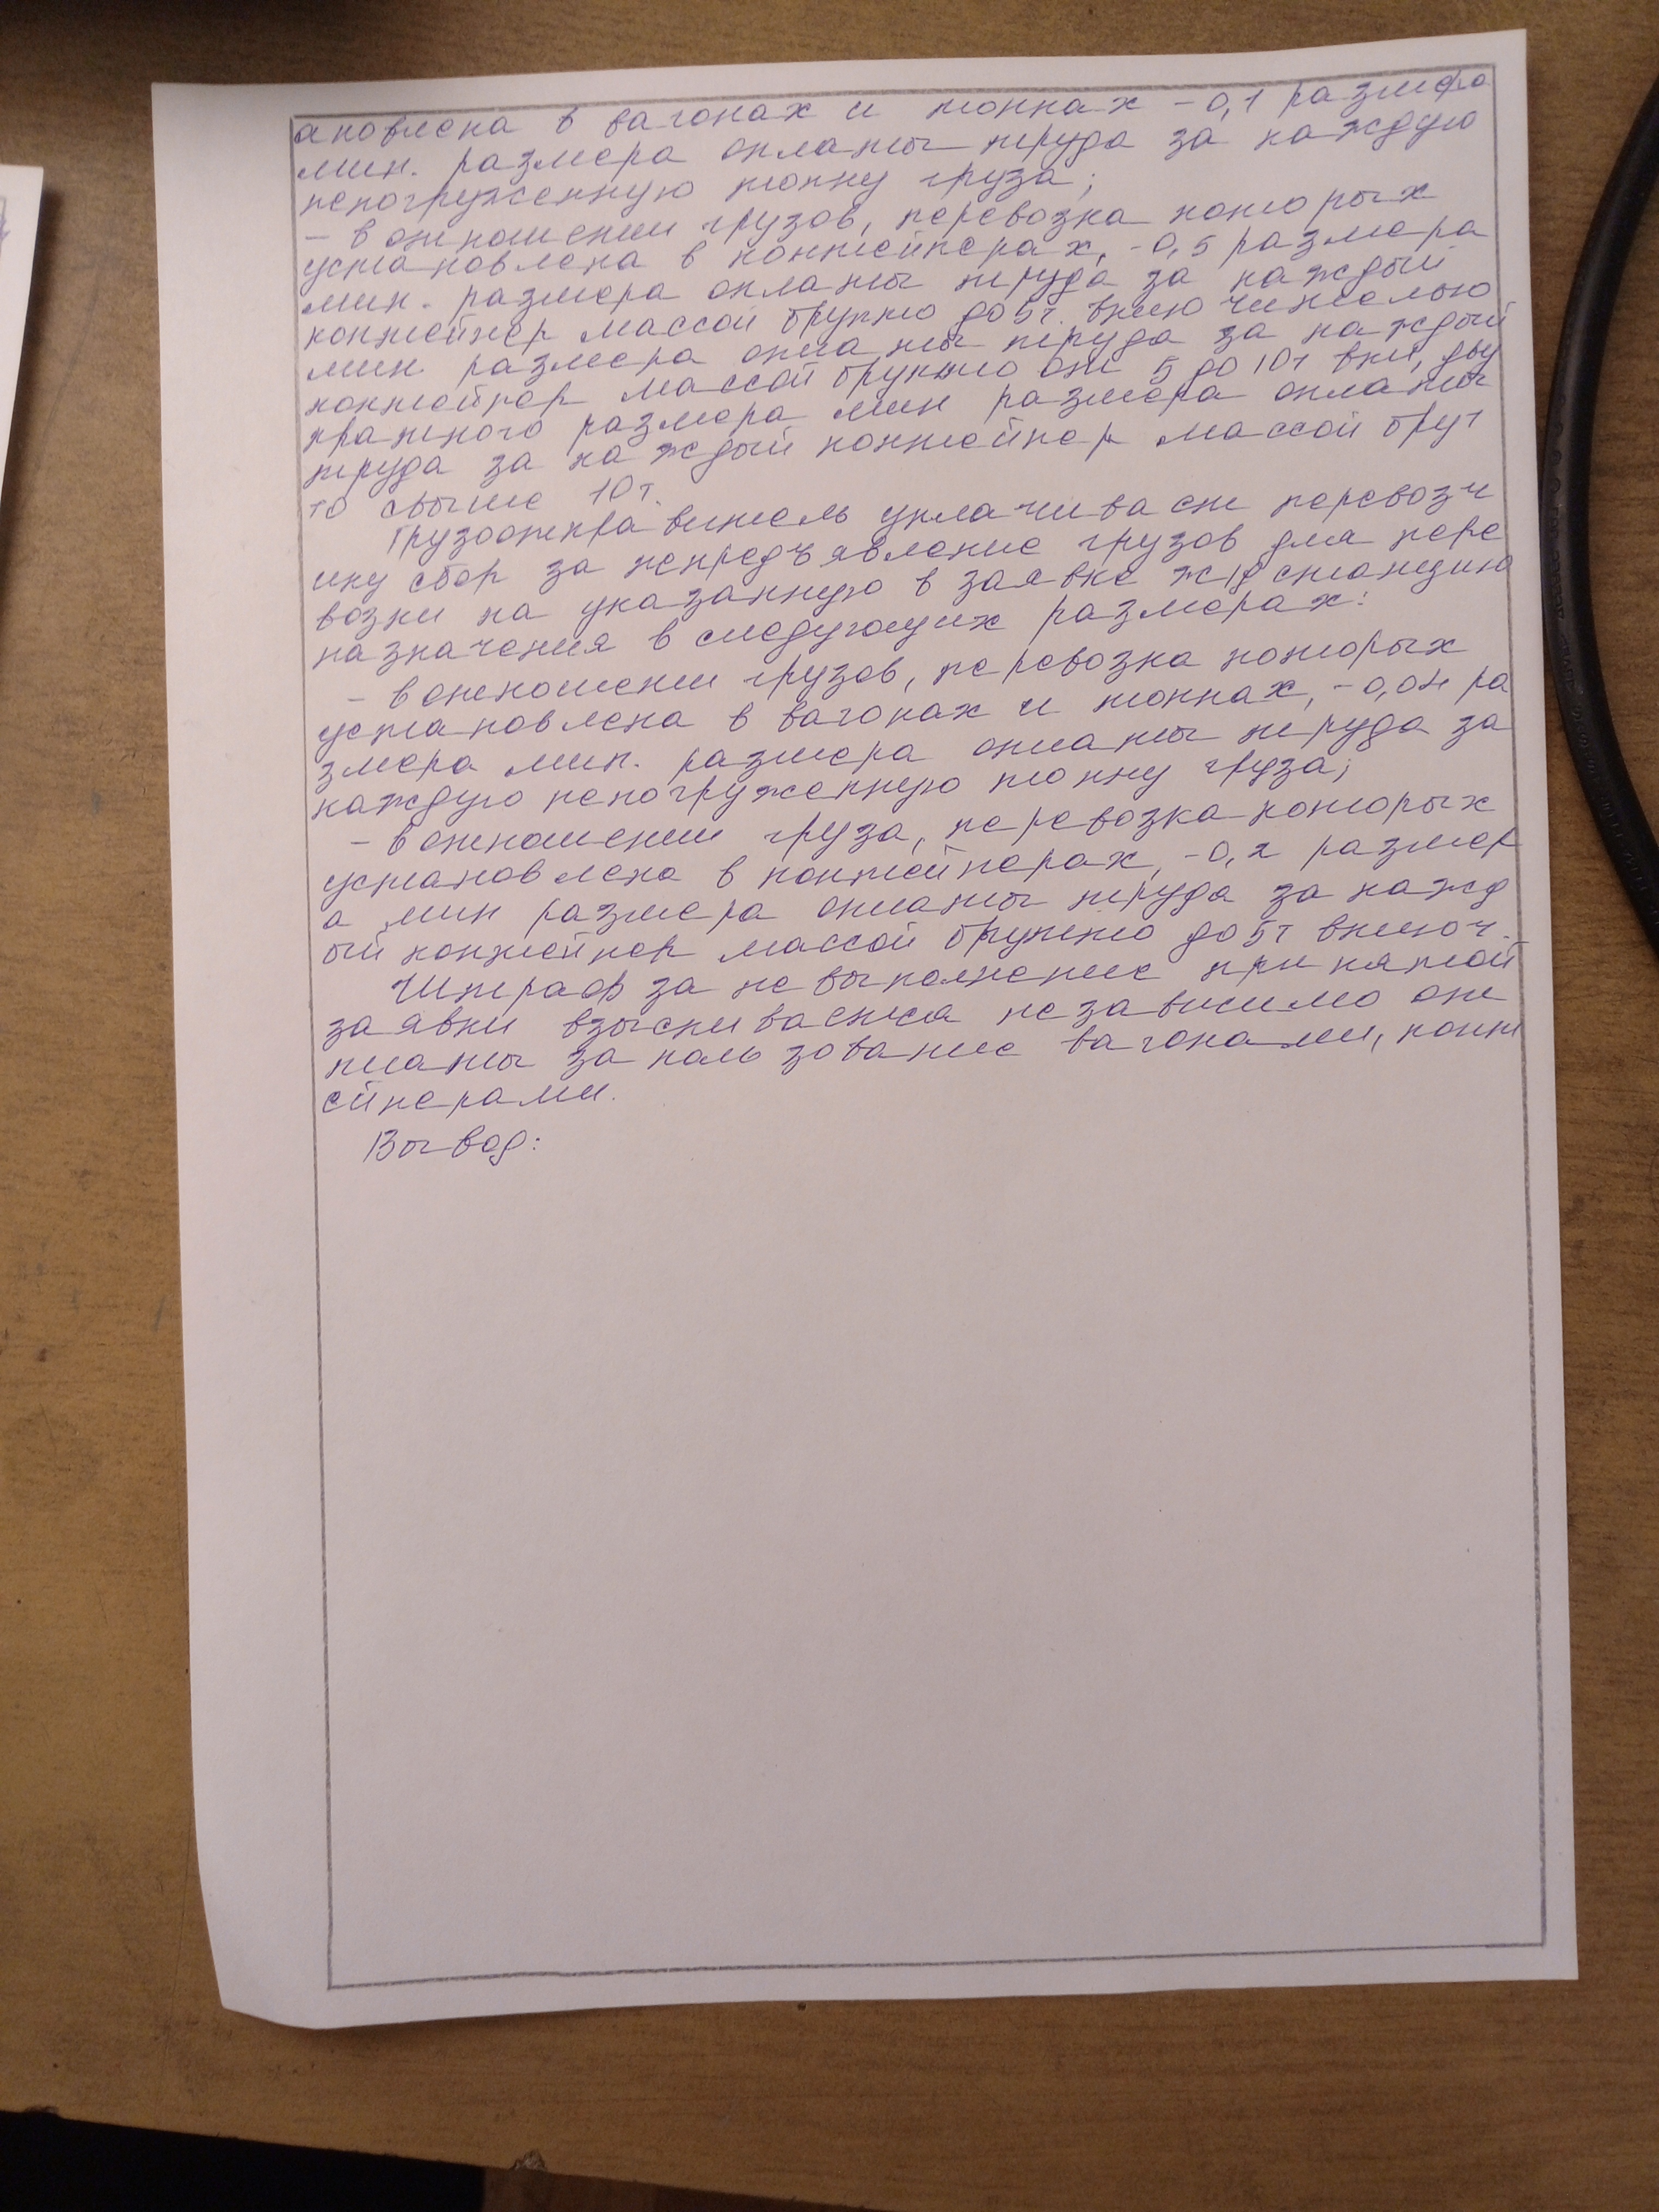 ановлена в вагонах и тоннах -0,1 размера
мин. размера оплаты труда за каждую
непогруженную тонну груза;
- в отношении грузов, перевозка которых
установлена в контейнерах, -0,5 размера
мин. размера оплаты труда за каждый
контейнер массой брутто до 5т. включительно
мин. размера оплаты труда за каждый
контейнер массой брутто от 5 до 10т вкл, дву
кратного размера мин размера оплаты
труда за каждый контейнер массой брут
то свыше 10т.
Грузоотправитель уплачивает перевозч
ику сбор за непредъявление грузов для пере
возки на указанную в заявке ж/д станцию
назначения в следующих размерах:
- в отношении грузов, перевозка которых
установлена в вагонах и тоннах, -0,04 ра
змера мин. размера оплаты труда за
каждую непогруженную тонну груза;
- в отношении груза, перевозка которых
установлена в контейнерах, -0,2 размер
а мин размера оплаты труда за кажд
ый контейнер массой брутто до 5т включ.
Штраф за невыполнение принятой
заявки взыскивается независимо от
платы за пользование вагонами, конт
ейнерами.
Вывод: